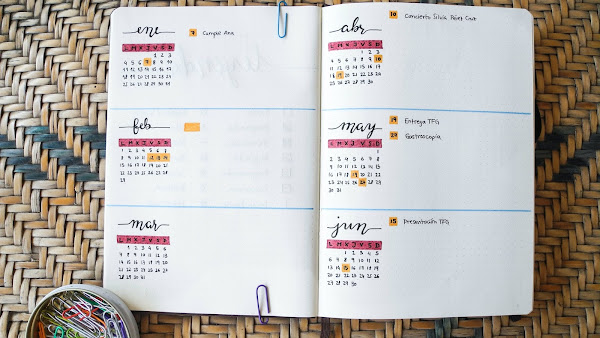 ene
L M X J V S D
1 2 3
4 5 6 7 8 9 10
11 12 13 14 15 16 17
18 19 20 21 22 23 24
25 26 27 28 29 30 31
7 Cumple Ana
feb
L M X J V S D
1 2 3 4 5 6 7
8 9 10 11 12 13 14
15 16 17 18 19 20 21
22 23 24 25 26 27 28
29
mar
L M X J V S D
1 2 3 4 5 6
7 8 9 10 11 12 13
14 15 16 17 18 19 20
21 22 23 24 25 26 27
28 29 30 31
abr
L M X J V S D
1 2 3
4 5 6 7 8 9 10
11 12 13 14 15 16 17
18 19 20 21 22 23 24
25 26 27 28 29 30
10 Concierto Silvia Pérez Cruz
may
L M X J V S D
1
2 3 4 5 6 7 8
9 10 11 12 13 14 15
16 17 18 19 20 21 22
23 24 25 26 27 28 29
30 31
19 Entrega TFG
Gastroscopia
jun
L M X J V S D
1 2 3 4 5
6 7 8 9 10 11 12
13 14 15 16 17 18 19
20 21 22 23 24 25 26
27 28 29 30
15 Presentación TFG